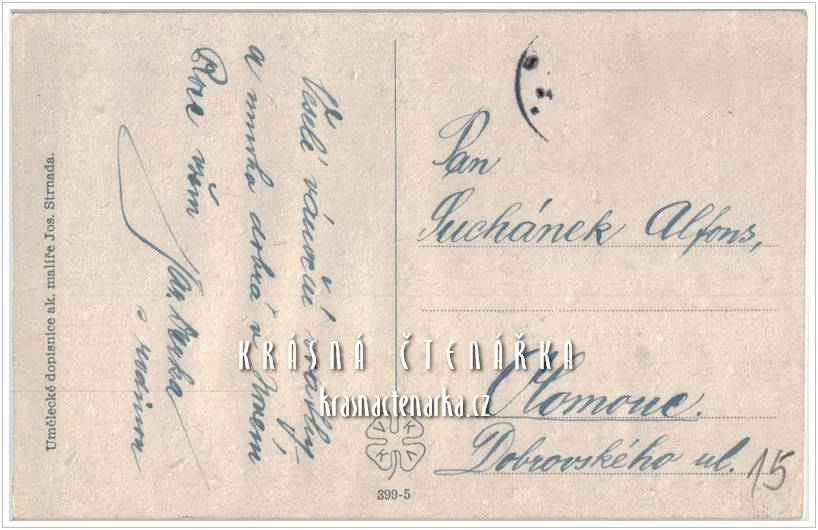 Umělecké dopisnice ak. malíře Jos. Strnada.
Veselé vánoční svátky,
a mnoho dobra v Novém
Roce všem
s rodinou
Pan
Suchánek Alfons,
Olomouc.
Dobrovského ul.
15
KRÁSNÁ ČTENÁŘKA
krasnactenarka.cz
399-5